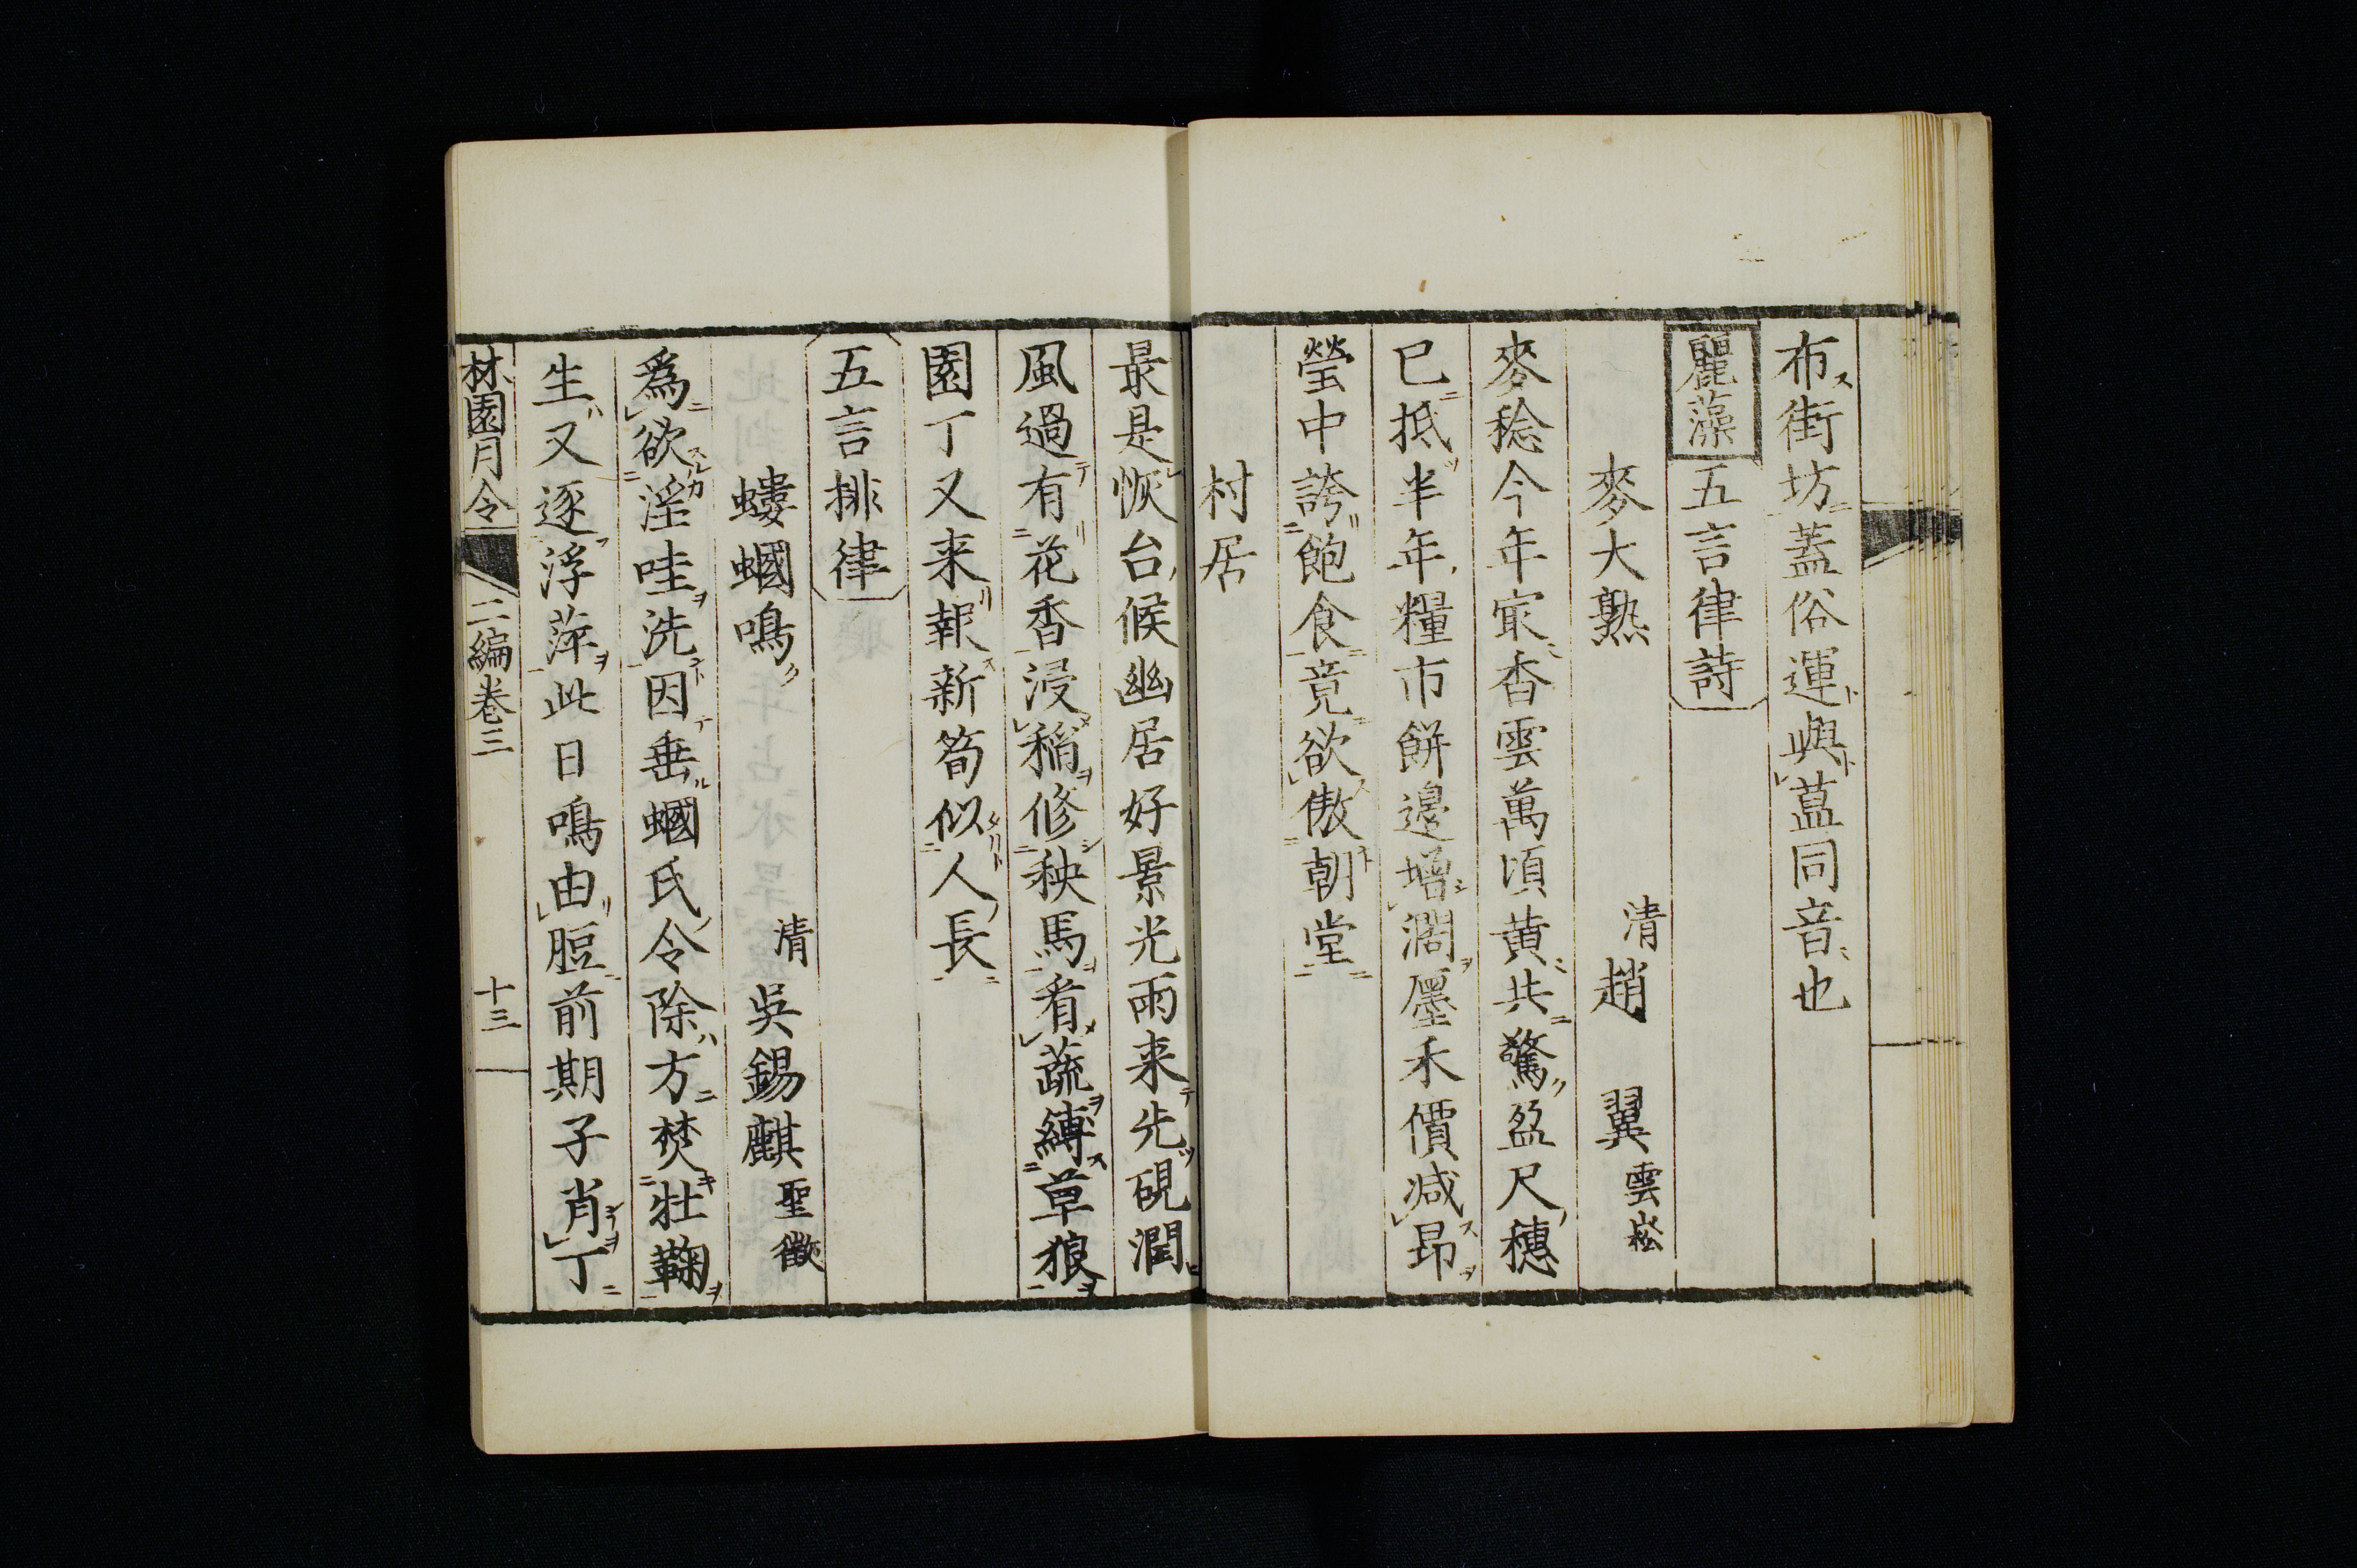 布街坊蓋俗運與藍同音也
麗藻 五言律詩
麥大熟 清 趙 翼 雲崧
麥稔今年冣香雲萬頃黄共驚盈尺穗
已抵半年糧市餅邊増濶墨禾價减昂
瑩中誇飽食竟欲傲朝堂
村居
最是恢台候幽居好景光雨来先硯潤
風過有花香浸稲修秧馬看蔬縛草狼
園丁又来報新筍似人長
五言排律
螻蟈鳴 清 吳錫麒 聖徵
爲欲淫哇洗因垂蟈氏令除方焚牡鞠
生又逐浮萍此日鳴由脰前期子肖丁
林園月令 二編卷三 十三